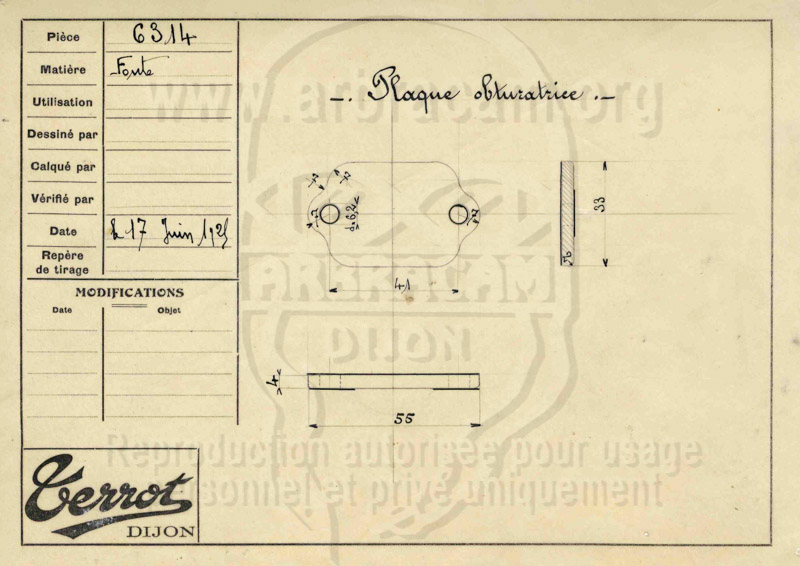 Pièce 6314
Matière Fonte
Utilisation
Dessiné par
Calqué par
Vérifié par
Date Le 17 Juin 1925
Repère
de tirage
MODIFICATIONS
Date Objet
Terrot
DIJON
www.arbracam.org
-. Plaque obturatrice .-
41
33
4
55
ARBRACAM
DIJON
Reproduction autorisée pour usage
personnel et privé uniquement